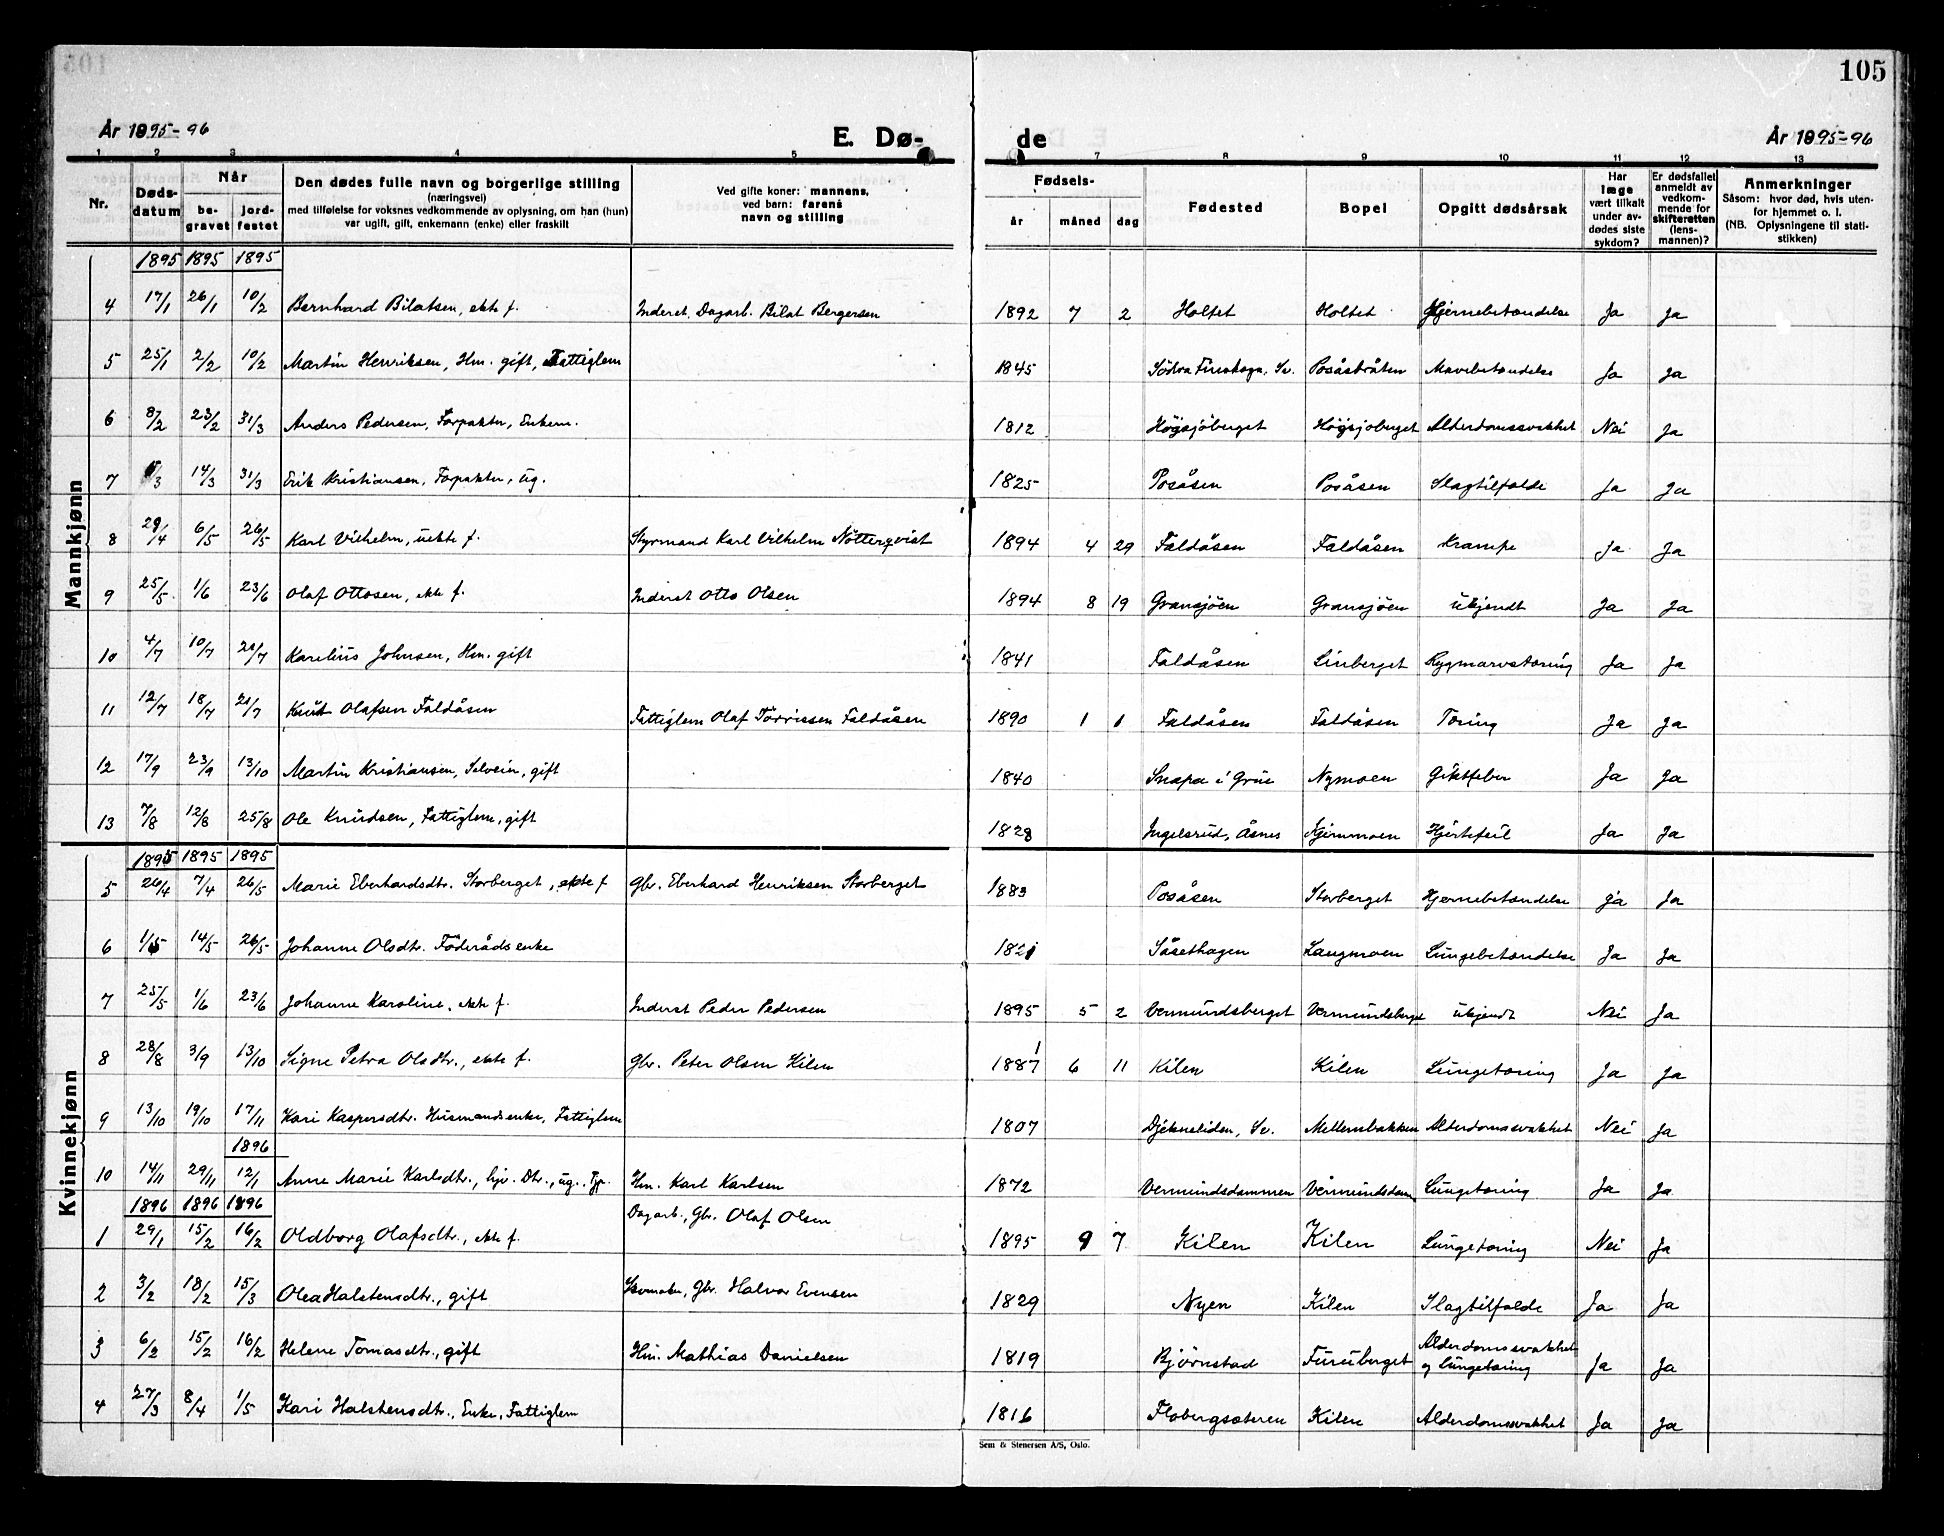 105
År 1895-96 E. Dø- de År 1895-96
1 2 3 4 5 7 8 9 10 11 12 13
Nr. Døds-datum Når be-gravet jord-festet Den dødes fulle navn og borgerlige stilling (næringsvei) med tilføielse for voksnes vedkommende av oplysning, om han (hun) var ugift, gift, enkemann (enke) eller fraskilt Ved gifte koner: mannens, ved barn: farens navn og stilling Fødsels- år måned dag Fødested Bopel Opgitt dødsårsak Har læge vært tilkalt under av-dødes siste sykdom? Er dødsfallet anmeldt av vedkom-mende for skifteretten (lens-mannen)? Anmerkninger Såsom: hvor død, hvis uten-for hjemmet o. l. (NB. Oplysningene til stati-stikken)
Mannkjønn
1895 1895 1895
4 17/1 26/1 10/2 Bernhard Bilatsen, ekte f. Inderst. Dagarb. Bilat Bergersen 1892 7 2 Holtet Holtet Hjernebetændelse Ja Ja
5 25/1 2/2 10/2 Martin Henriksen, Hm. gift, Fattiglem 1845 Södra Finskoga, Sv. Posåsbråten Mavebetændelse Ja Ja
6 8/2 23/2 31/3 Anders Pedersen, Forpakter, Enkem. 1812 Högsjöberget Högsjöberget Alderdomssvakhet Nei Ja
7 /3 14/3 31/3 Erik Kristiansen, Forpakter, ug. 1825 Posåsen Posåsen Slagtilfælde Ja Ja
8 29/4 6/5 26/5 Karl Vilhelm, uekte f. Styrmand Karl Vilhelm Nötterqvist 1894 4 29 Faldåsen Faldåsen Krampe Ja Ja
9 25/5 1/6 23/6 Olaf Ottosen, ekte f. Inderst Otto Olsen 1894 8 19 Gransjöen Gransjöen ukjendt Ja Ja
10 4/7 10/7 21/7 Karelius Johnsen, Hm. gift 1841 Faldåsen Linberget Rygmarvstæring Ja Ja
11 12/7 18/7 21/7 Knut Olafsen Faldåsen Fattiglem Olaf Torrissen Faldåsen 1890 1 1 Faldåsen Faldåsen Tæring Ja Ja
12 17/9 23/9 13/10 Martin Kristiansen, Selveier, gift 1840 Snapa i Grue Nymoen Giktfeber Ja Ja
13 7/8 12/8 25/8 Ole Knudsen, Fattiglem, gift 1828 Ingelsrud, Åsnes Kjernmoen Hjertefeil Ja Ja
Kvinnekjønn
1895 1895 1895
5 26/4 7/4 26/5 Marie Eberhardsdtr. Storberget, ekte f Gbr. Eberhard Henriksen Storberget 1883 Posåsen Storberget Hjernebetændelse ja Ja
6 1/5 14/5 26/5 Johanne Olsdtr. Föderådsenke 1821 Såsethagen Langmoen Lungebetændelse Ja Ja
7 25/5 1/6 23/6 Johanne Karoline, ekte f. Inderst Peder Pedersen 1895 5 2 Vermundsberget Vermundsberget ukjendt Nei Ja
8 28/8 3/9 13/10 Signe Petra Olsdtr., ekte f. Gbr. Peter Olsen Kilen 1887 6 11 Kilen Kilen Lungetæring Ja Ja
9 13/10 19/10 17/11 Kari Kaspersdtr. Husmandsenke, Fattiglem 1807 Djekneliden, Sv. Mellembakken Alderdomssvakhet Nei Ja
1896
10 14/11 29/11 12/1 Anne Marie Karlsdtr., hjv. Dtr., ug. Tjp. Hm. Karl Karlsen 1872 Vermundsdammen Vermundsdam Lungetæring Ja Ja
1896 1896 1896
1 29/1 15/2 16/2 Oldborg Olafsdtr., ekte f. Dagarb., Gbr. Olaf Olsen 1895 9 7 Kilen Kilen Lungetæring Nei Ja
2 3/2 18/2 15/3 Olea Halstensdtr., gift Skomaker, Gbr. Halvor Evensen 1829 Nyen Kilen Slagtilfælde Ja Ja
3 6/2 15/2 16/2 Helene Tomasdtr., gift Hm. Mathias Danielsen 1819 Bjørnstad Furuberget Alderdomssvakhet og Lungetæring Ja Ja
4 27/3 8/4 1/5 Kari Halstensdtr., Enke, Fattiglem 1816 Flobergsæteren Kilen Alderdomssvakhet Ja Ja
Sem & Stenersen A/S, Oslo.